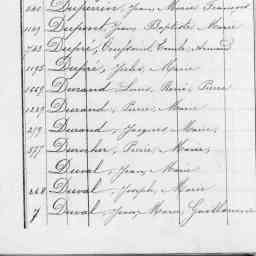 Duperrin, Jean Marie François
1121 Dupont, Jean Baptiste Marie
743 Dupré, Constant Emile Armand
1195 Dupré, Jules, Marie
1669 Durand, Louis, René, Pierre
1289 Durand, Pierre, Marie
279 Durand, Jacques, Marie,
577 Durocher, Pierre, Marie,
Duval, Jean, Marie
268 Duval, Joseph, Marie
7 Duval, Jean, Marie, Guillaume